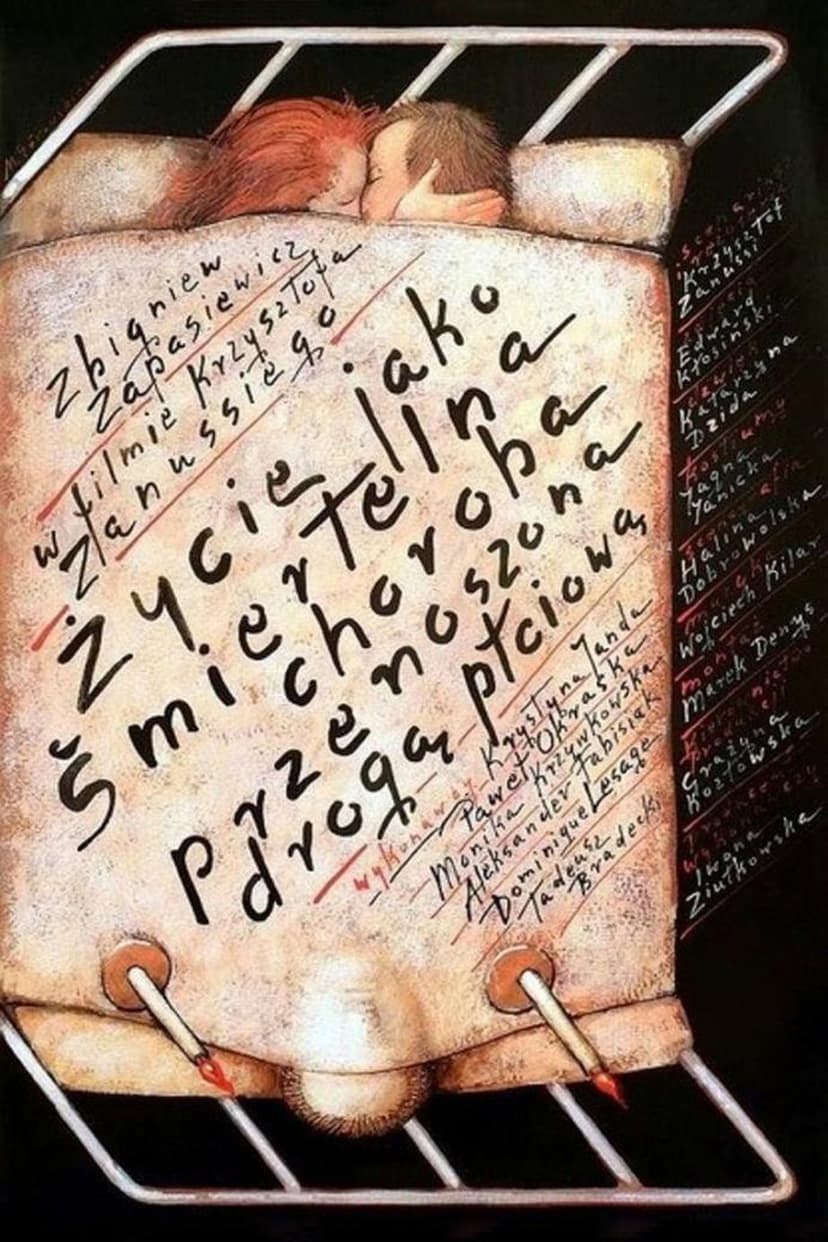 Zbigniew
Zapasiewicz
w filmie Krzysztofa
Zanussiego
Życie jako
śmiertelna
choroba
przenoszona
drogą płciową
wykonawcy Krystyna Janda
Paweł Okraska
Monika Krzywkowska
Aleksander Fabisiak
Dominique Lesage
Tadeusz
Bradecki
Krzysztof
Zanussi
Edward
Kłosiński
dźwięk
Katarzyna
Dzida
kostiumy
Jagna
Janicka
scenografia
Halina
Dobrowolska
muzyka
Wojciech Kilar
montaż
Marek Denys
kierownictwo
produkcji
Grażyna
Kozłowska
Iwona
Ziułkowska